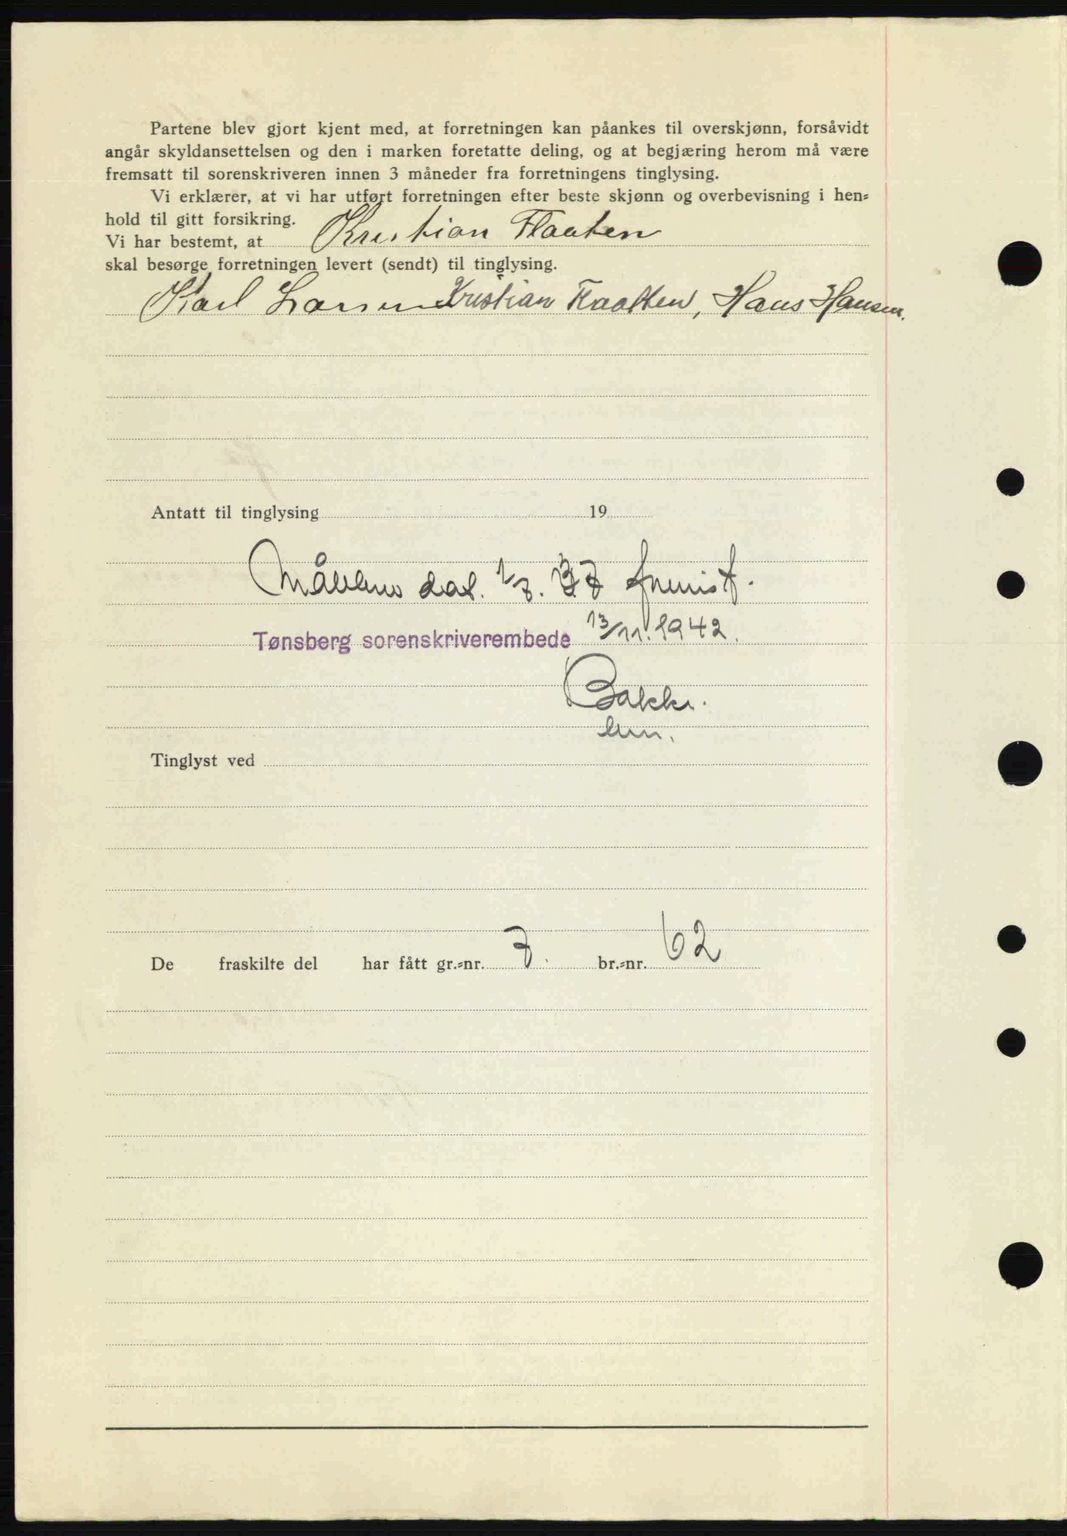 Partene blev gjort kjent med, at forretningen kan påankes til overskjønn, forsåvidt
angår skyldansettelsen og den i marken foretatte deling, og at begjæring herom må være
fremsatt til sorenskriveren innen 3 måneder fra forretningens tinglysing.
Vi erklærer, at vi har utført forretningen efter beste skjønn og overbevisning i hen-
hold til gitt forsikring.
Vi har bestemt, at Kristian Flaaten
skal besørge forretningen levert (sendt) til tinglysing.
Karl Larsen Kristian Flaatten, Hans Hansen.
Antatt til tinglysing 19
dat.
Tønsberg sorenskriverembede 13/11.1942.
Bakke.
Tinglyst ved
De fraskilte del har fått gr.-nr. 7. br.-nr. 62